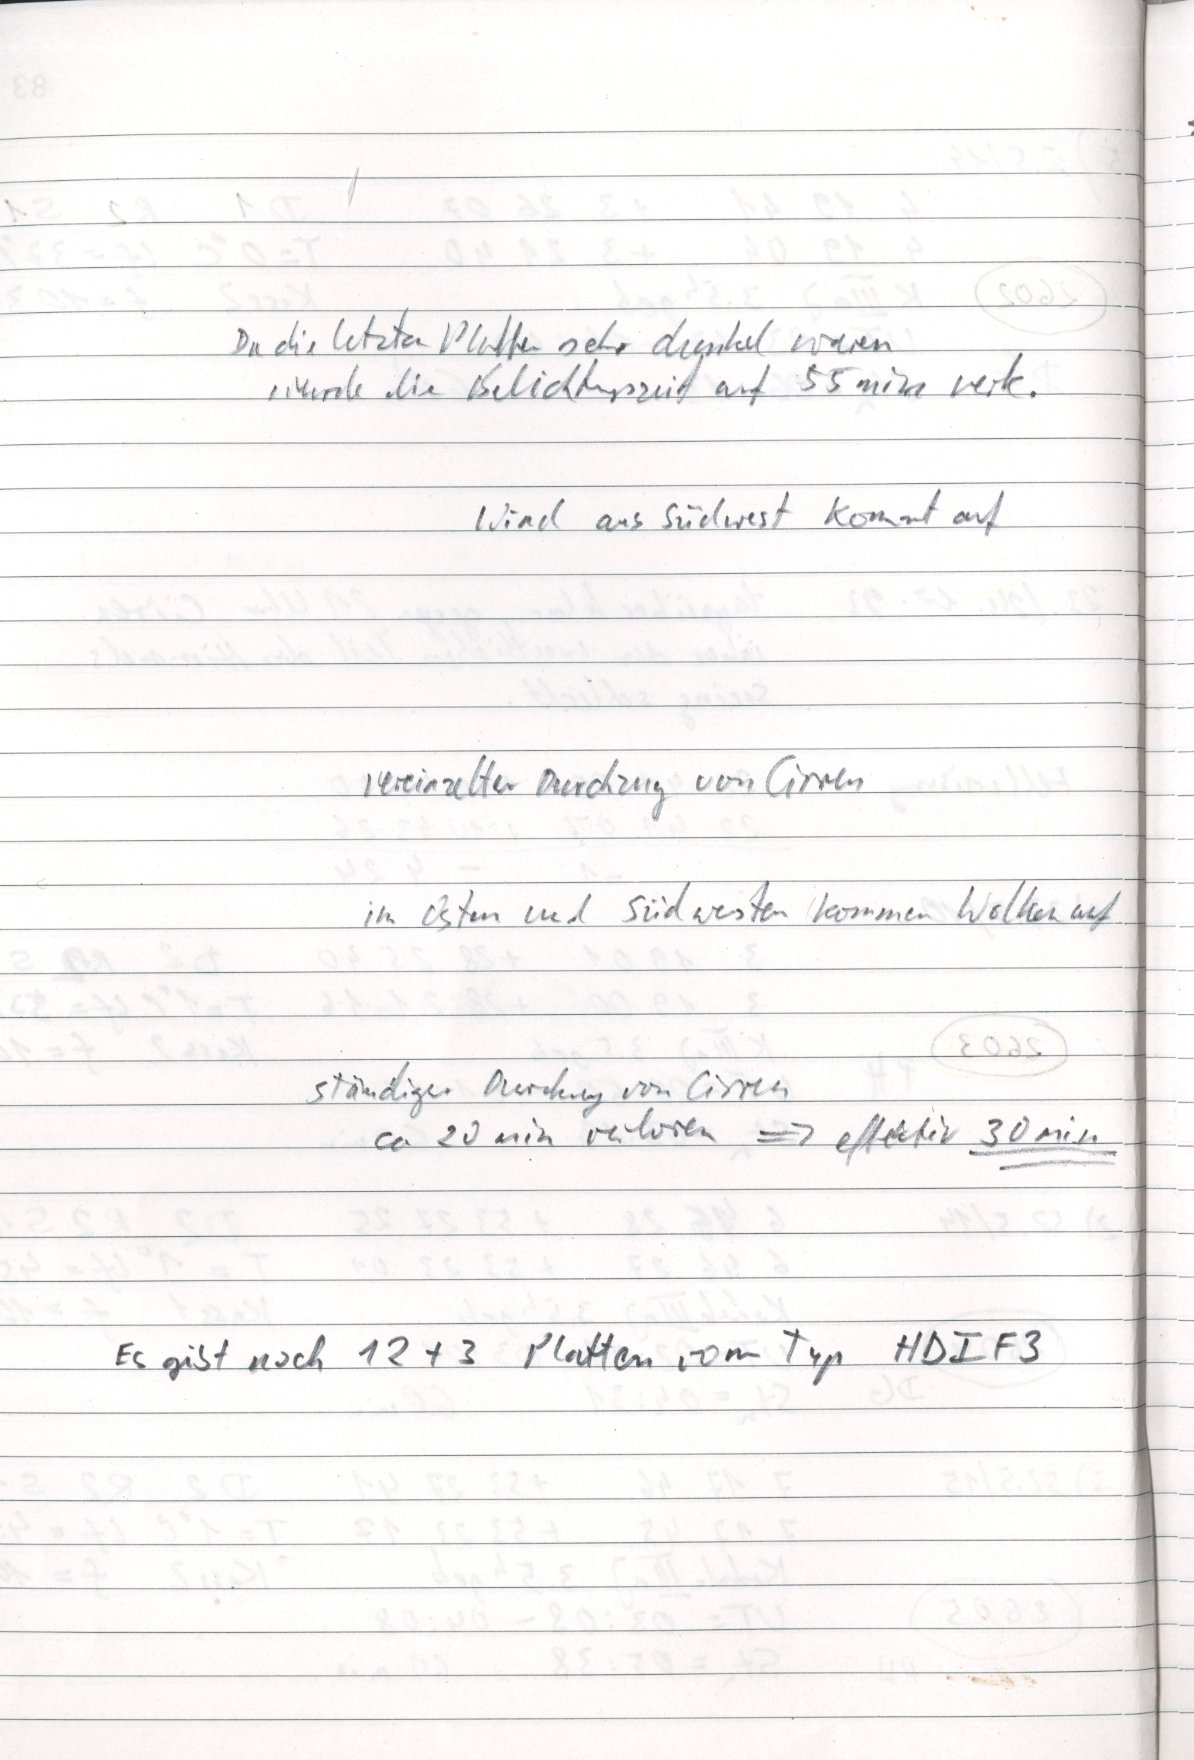 Da die letzten Platten sehr dunkel waren
wurde die Belichtungszeit auf 55 min verk.
Wind aus Südwest kommt auf
vereinzelter Durchzug von Cirren
im Osten und Südwesten kommen Wolken auf
ständiger Durchzug von Cirren
ca 20 min verloren => effektiv 30 min
Es gibt noch 12 + 3 Platten vom Typ HDIF3